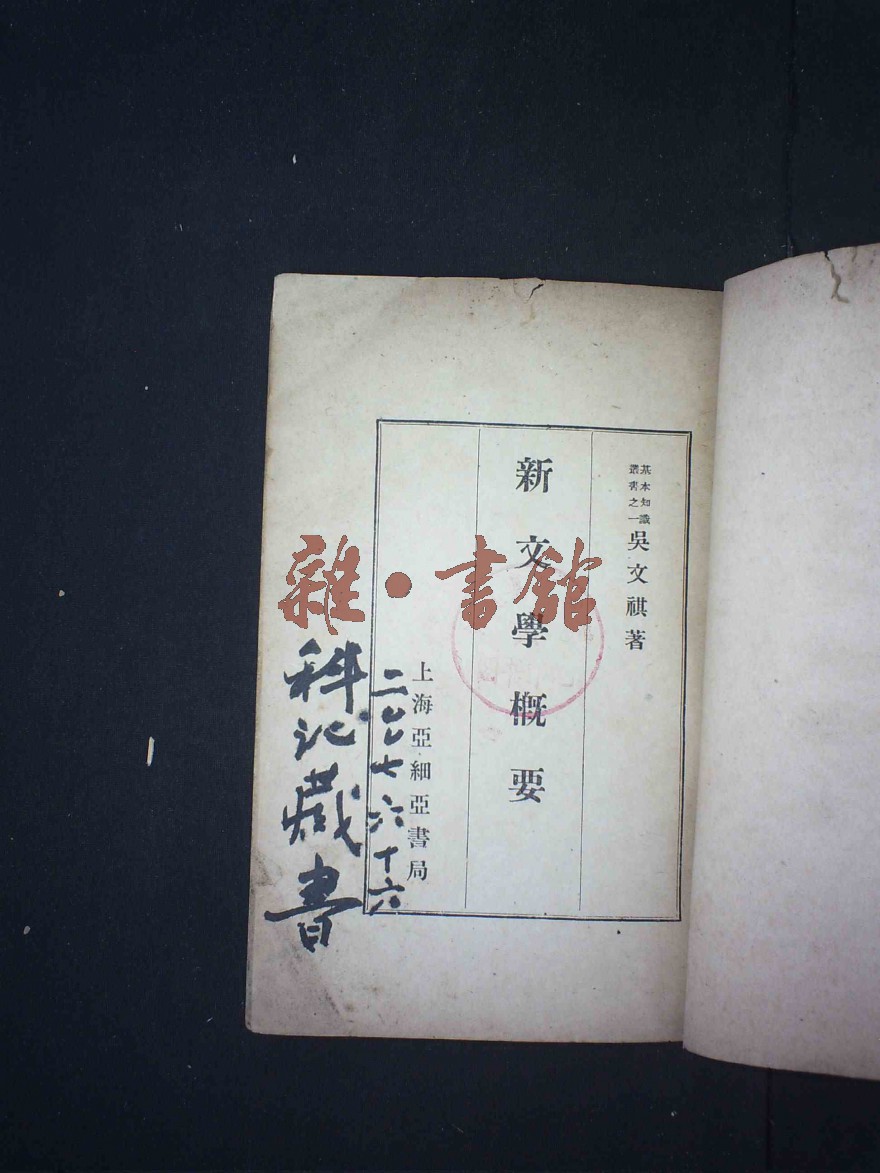 基本知識
叢書之一
吳文祺著
新文學概要
上海亞細亞書局
二〇〇七六十六
科记藏書
雜·書館